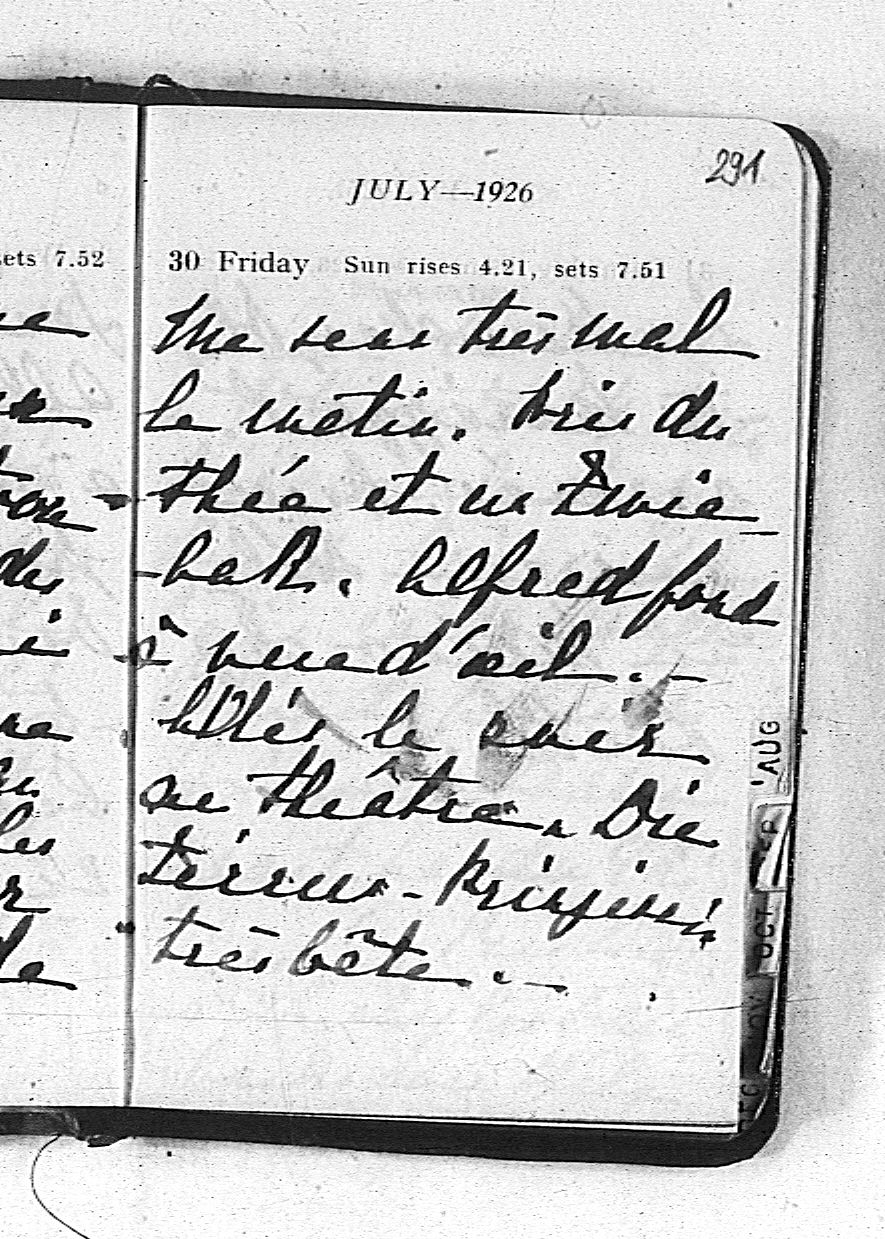 291
JULY—1926
sets 7.52
30 Friday Sun rises 4.21, sets 7.51
Me sens très mal
le matin. Pris du
thée et un Zwie
-bak. Alfred fond
à vue d'œil. —
Allés le soir
au théâtre. Die
très bête. —
des
les
de
AUG
SEP
OCT
NOV
DEC